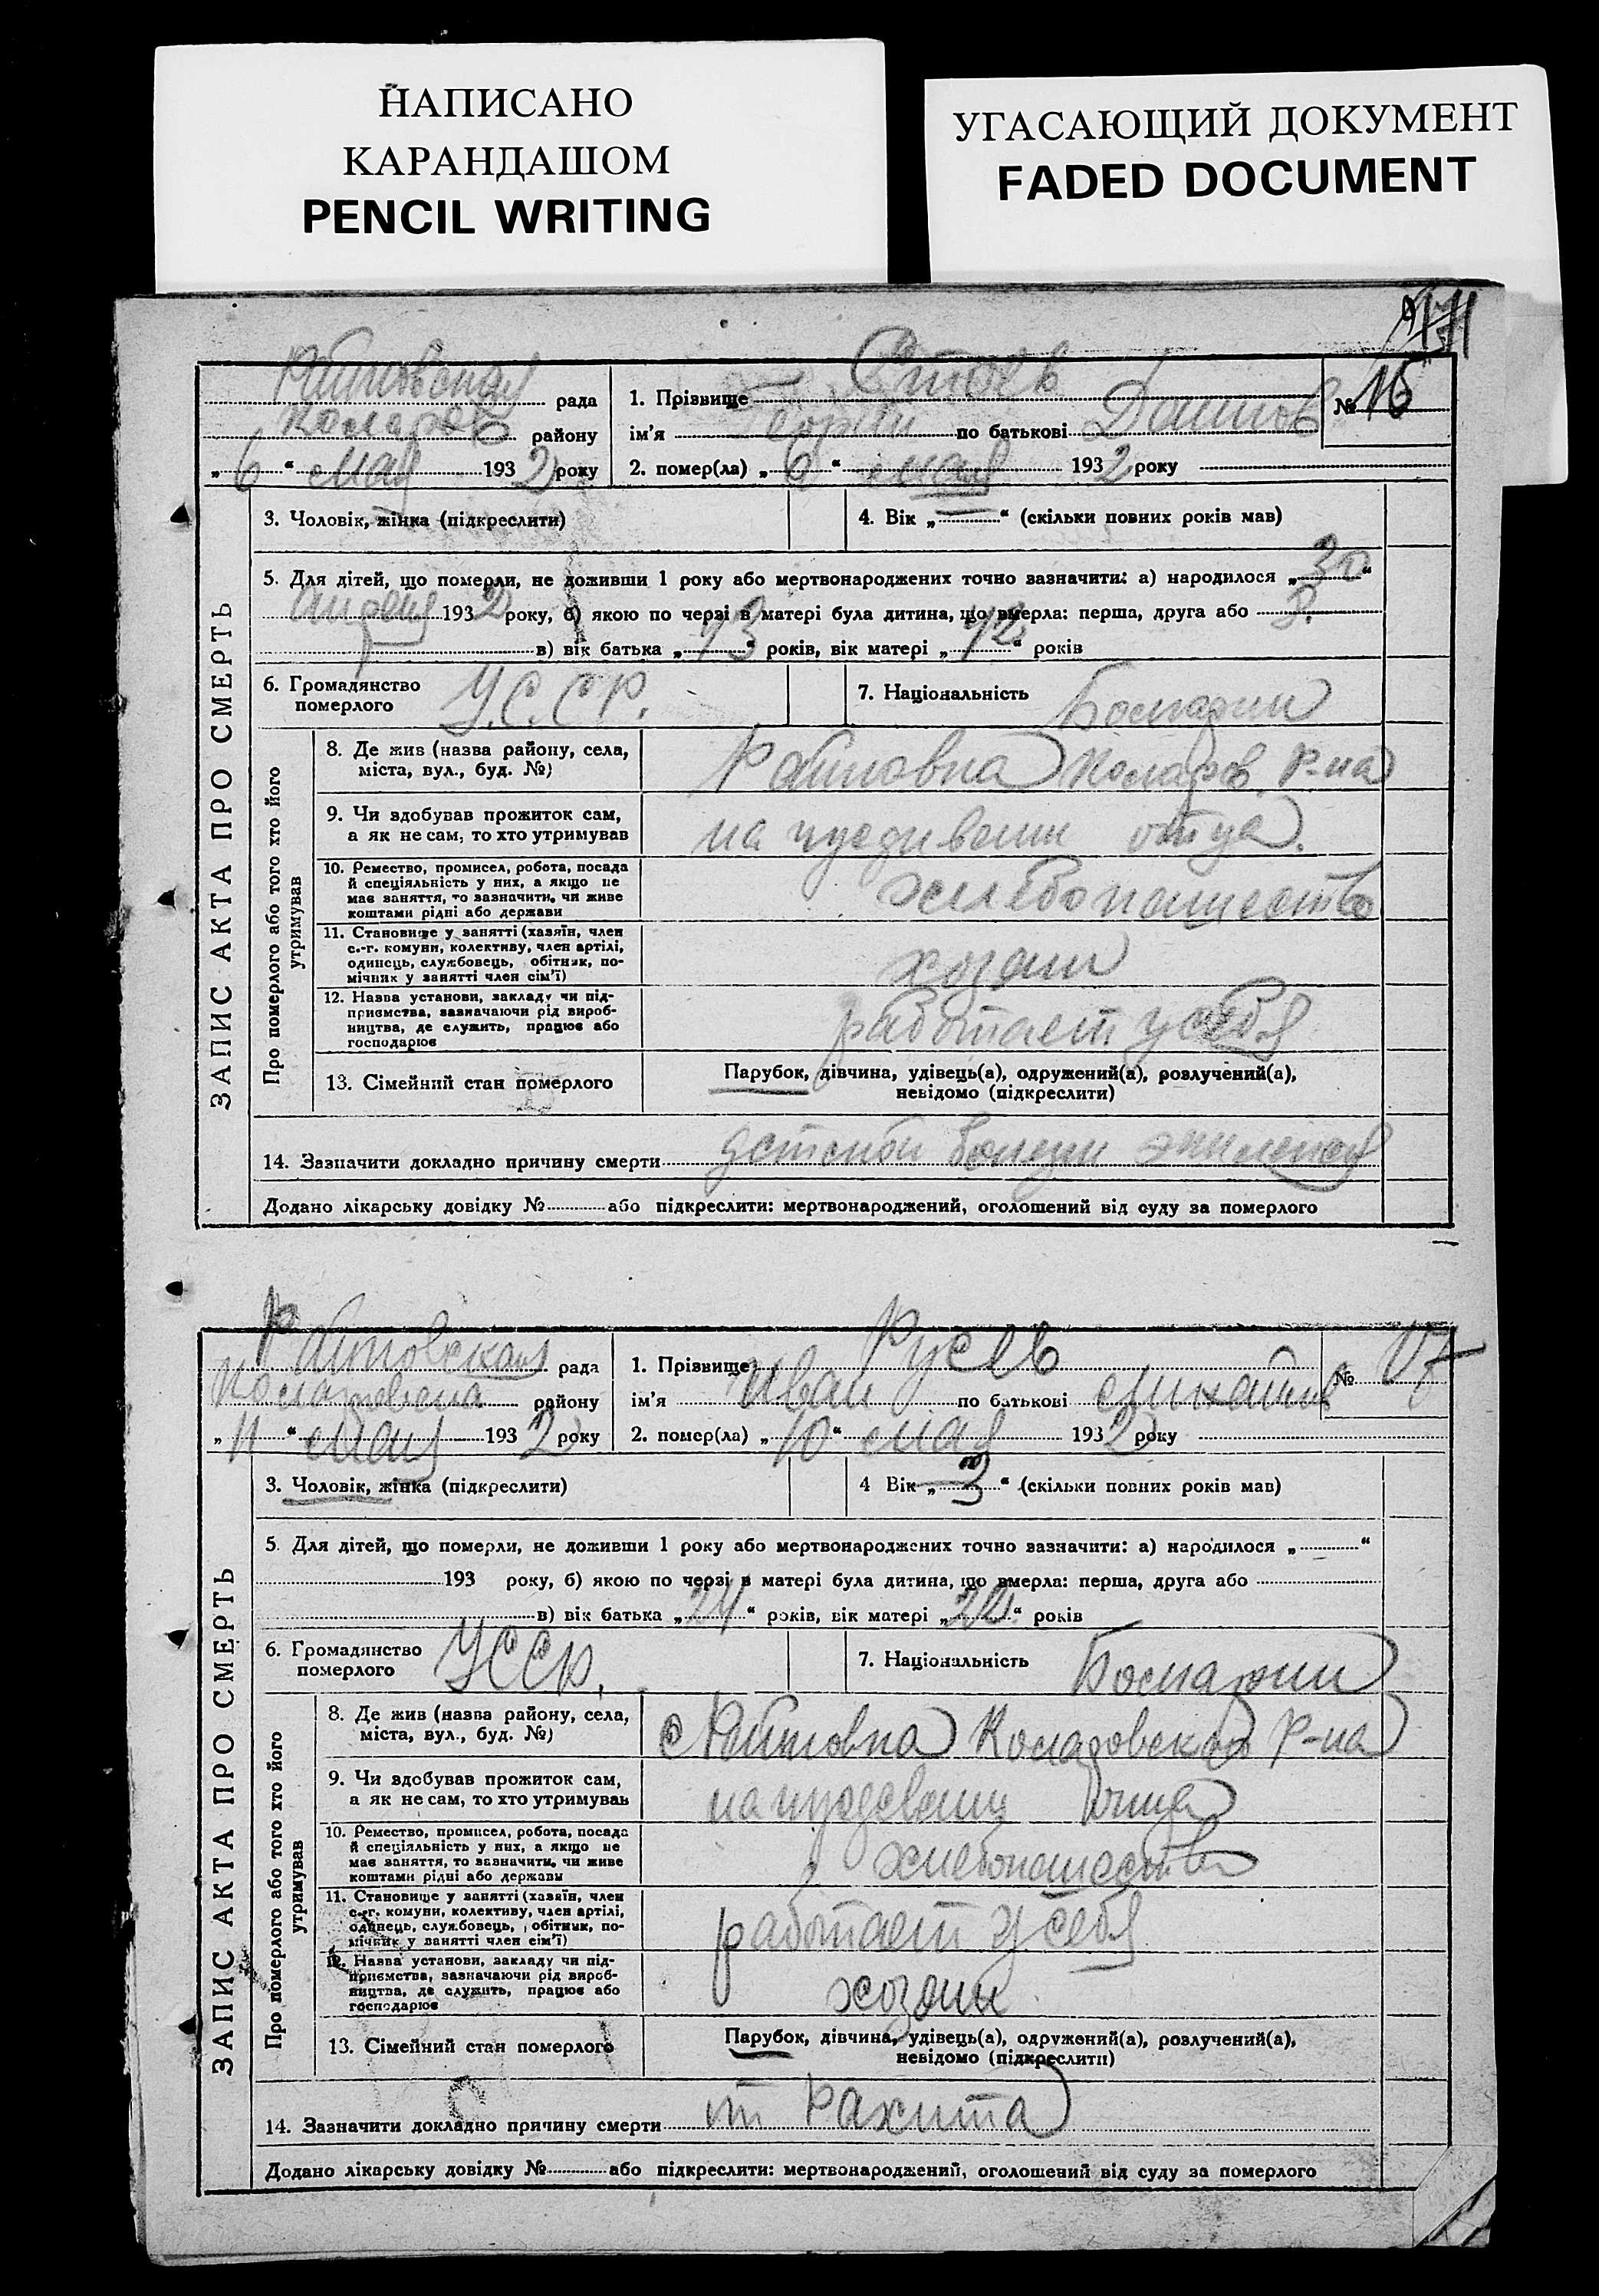 НАПИСАНО
КАРАНДАШОМ
PENCIL WRITING
УГАСАЮЩИЙ ДОКУМЕНТ
FADED DOCUMENT
ЗАПИС АКТА ПРО СМЕРТЬ
рада
Коларов району
„6“ мая 1932 року
1. Прізвище Стоев
ім'я Георги по батькові
№ 16
2. помер(ла) „6“ мая 1932 року
3. Чоловік, жінка (підкреслити)
4. Вік „ “ (скільки повних років мав)
5. Для дітей, що померли, не доживши 1 року або мертвонароджених точно зазначити: а) народилося „30“
апреля 1932 року, б) якою по черзі в матері була дитина, що вмерла: перша, друга або
в) вік батька „43“ років, вік матері „42“ років
6. Громадянство
померлого
У.С.С.Р.
7. Національність
Про померлого або того хто його
утримував
8. Де жив (назва району, села,
міста, вул., буд. №)
Коларов. Р-на
9. Чи здобував прожиток сам,
а як не сам, то хто утримував
отца.
10. Ремество, промисел, робота, посада
й спеціяльність у них, а якщо не
має заняття, то зазначити, чи живе
коштами рідні або держави
хлебопашество
11. Становище у занятті (хазяїн, член
с.-г. комуни, колективу, член артілі,
одинець, службовець, обітник, по-
мічник у занятті член сім'ї)
хозаин
12. Назва установи, закладу чи під-
приємства, зазначаючи рід вироб-
ництва, де служить, працює або
господарює
работает у себя
13. Сімейний стан померлого
Парубок, дівчина, удівець(а), одружений(а), розлучений(а),
невідомо (підкреслити)
14. Зазначити докладно причину смерти
Додано лікарську довідку № або підкреслити: мертвонароджений, оголошений від суду за померлого
ЗАПИС АКТА ПРО СМЕРТЬ
рада
району
„11“ мая 1932 року
1. Прізвище Русев
ім'я Иван по батькові
№ 17
2. помер(ла) „10“ мая 1932 року
3. Чоловік, жінка (підкреслити)
4 Вік „3“ (скільки повних років мав)
5. Для дітей, що померли, не доживши 1 року або мертвонароджених точно зазначити: а) народилося „ “
193 року, б) якою по черзі в матері була дитина, що вмерла: перша, друга або
в) вік батька „24“ років, вік матері „ “ років
6. Громадянство
померлого
УССР.
7. Національність
Про померлого або того хто його
утримував
8. Де жив (назва району, села,
міста, вул., буд. №)
Р-на
9. Чи здобував прожиток сам,
а як не сам, то хто утримував
10. Ремество, промисел, робота, посада
й спеціяльність у них, а якщо не
має заняття, то зазначити, чи живе
коштами рідні або держави
11. Становище у занятті (хазяїн, член
с.-г. комуни, колективу, член артілі,
одинець, службовець, обітник, по-
мічник у занятті член сім'ї)
работает у себя
12. Назва установи, закладу чи під-
приємства, зазначаючи рід вироб-
ництва, де служить, працює або
господарює
хозаин
13. Сімейний стан померлого
Парубок, дівчина, удівець(а), одружений(а), розлучений(а),
невідомо (підкреслити)
14. Зазначити докладно причину смерти от Рахита
Додано лікарську довідку № або підкреслити: мертвонароджений, оголошений від суду за померлого